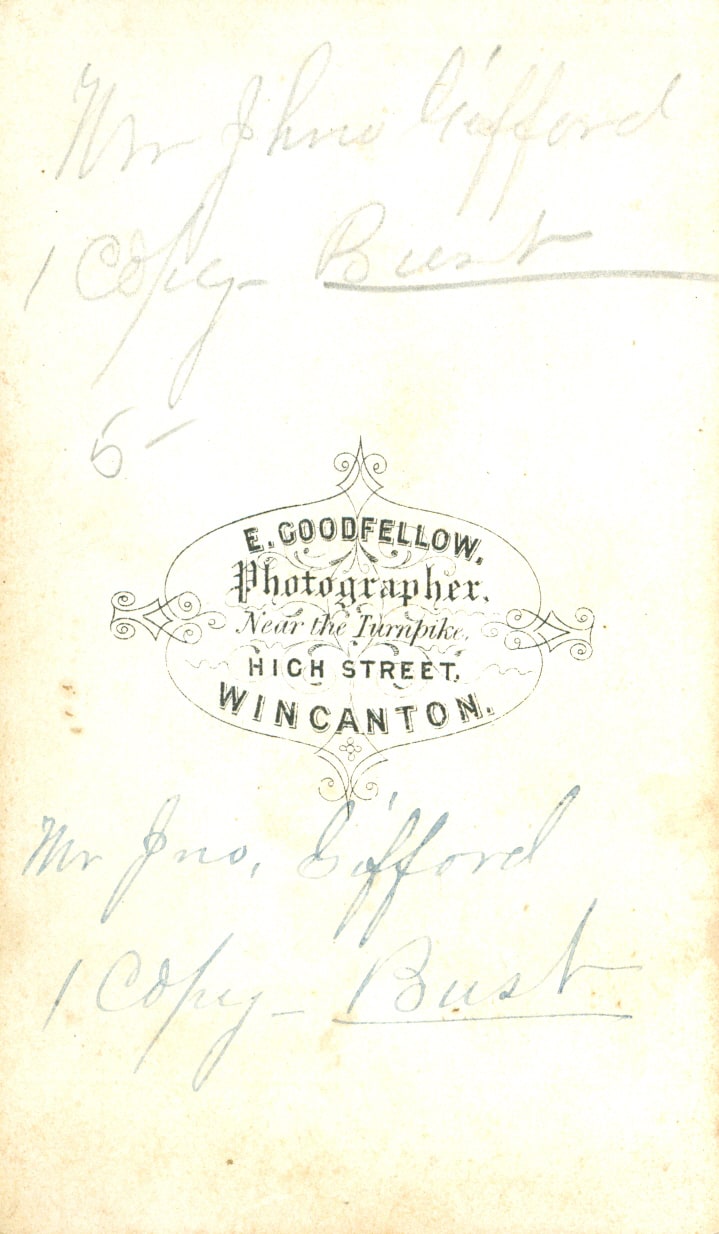 Mr Jhno Gifford
1 Copy - Bust
5 -
E. GOODFELLOW,
Photographer.
Near the Turnpike,
HIGH STREET,
WINCANTON.
Mr Jno, Gifford
1 Copy - Bust